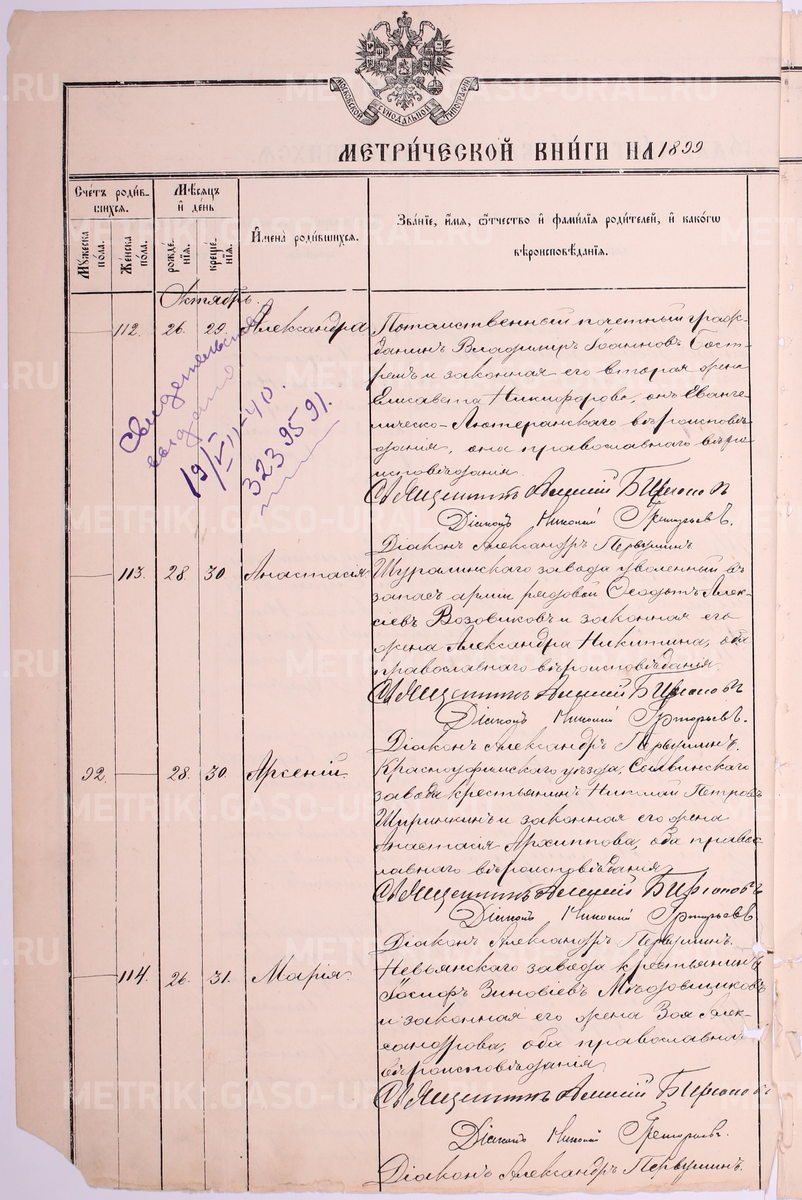 МОСКОВСКОЙ СѴНОДАЛЬНОЙ ТИПОГРАФІИ
МЕТРИ́ЧЕСКОЙ КНИ́ГИ НА 1899
Сче́тъ роди́в-
шихся.
Му́жеска по́ла.
Же́нска по́ла.
Мѣ́сяцъ
и҆ де́нь
рожде́-
нїя.
креще́-
нїя.
И҆мена̀ роди́вшихся.
Зва́нїе, и҆́мя, ѻ҆́тчество и҆ фами́лїя роди́телей, и҆ како́гѡ
вѣроисповѣ́данїя.
Октябрь.
112. 26. 29. Александра
Потомственный почетный граж-
данинъ Владимиръ Іоанновъ Бост-
ремъ и законная его вторая жена
Елисавета Никифорова, онъ Еванге-
лическо-Лютеранскаго вѣроисповѣ-
данія, она православнаго вѣро-
исповѣданія.
Священникъ Алексій Бирюковъ
Діаконъ Николай Григорьевъ.
Діаконъ Александръ Первушинъ.
Свидетельство
выдано
19/VII-40.
3239591.
113. 28. 30. Анастасія
Шуралинскаго завода уволенный въ
запасъ арміи рядовой Ѳеодотъ Алек-
сіевъ Возовиковъ и законная его
жена Александра Никитина, оба
православнаго вѣроисповѣданія.
Священникъ Алексій Бирюковъ
Діаконъ Николай Григорьевъ.
Діаконъ Александръ Первушинъ.
92. 28. 30. Арсеній.
Красноуфимскаго уѣзда, Сылвинскаго
завода крестьянинъ Николай Петровъ
Ширинкинъ и законная его жена
Анастасія Архиппова, оба правос-
лавнаго вѣроисповѣданія
Священникъ Алексій Бирюковъ
Діаконъ Николай Григорьевъ
Діаконъ Александръ Первушинъ.
114. 26. 31. Марія.
Невьянскаго завода крестьянинъ
Іосифъ Зиновіевъ Мѣдовщиковъ
и законная его жена Зоя Алек-
сандрова, оба православнаго
вѣроисповѣданія
Священникъ Алексій Бирюковъ
Діаконъ Николай Григорьевъ.
Діаконъ Александръ Первушинъ.
METRIKI.GASO-URAL.RU